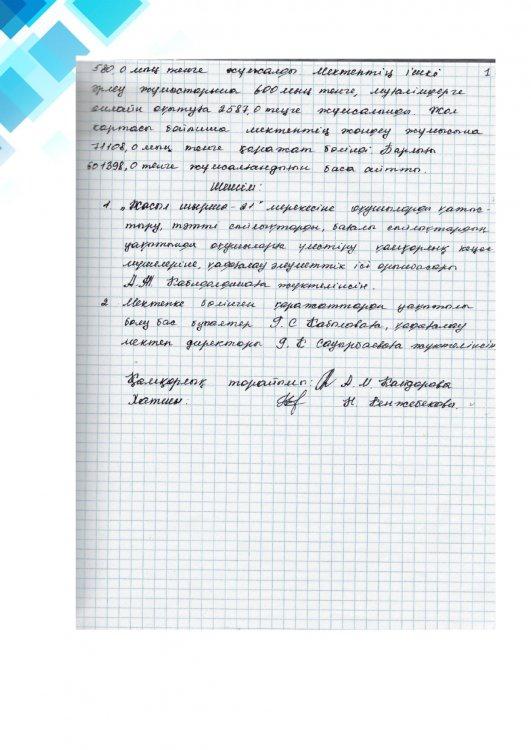 580,0 мың теңге жұмсалды Мектептің ішкі 1
әрлеу жұмыстарына 600 мың теңге, мұғалімдерге
онлайн оқытуға 2587,0 теңге жұмсалынды. Жол
картасы бойынша мектептің жөндеу жұмысына
71108,0 мың теңге қаражат бөлінді Барлығы
601398,0 теңге жұмсалғандығын баса айтты.
Шешім:
1 „Жасыл шырша-21" мерекесіне оқушыларды қатыс-
тыру, тәтті сыйлықтарды, бағалы сыйлықтардың
уақытында оқушыларға үлестіру қамқорлық кеңес
мүшелеріне, қадағалау әлеуметтік ісі орынбасары
А.Т жүктелінсін.
2 Мектепке бөлінген қаражаттардың уақытылы
болу бас бухгалтер Г.С Кабылова, қадағалау
мектеп директоры Г.К жүктелінсін
Қамқорлық торайымы: А.М.
Хатшы: Н. Кенжебекова.